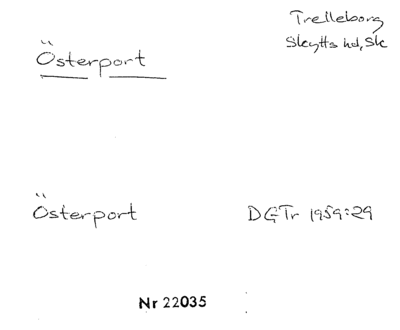 Trelleborg
Skytts hd, Sk
Österport
Österport DGTr 1959:29
Nr 22035